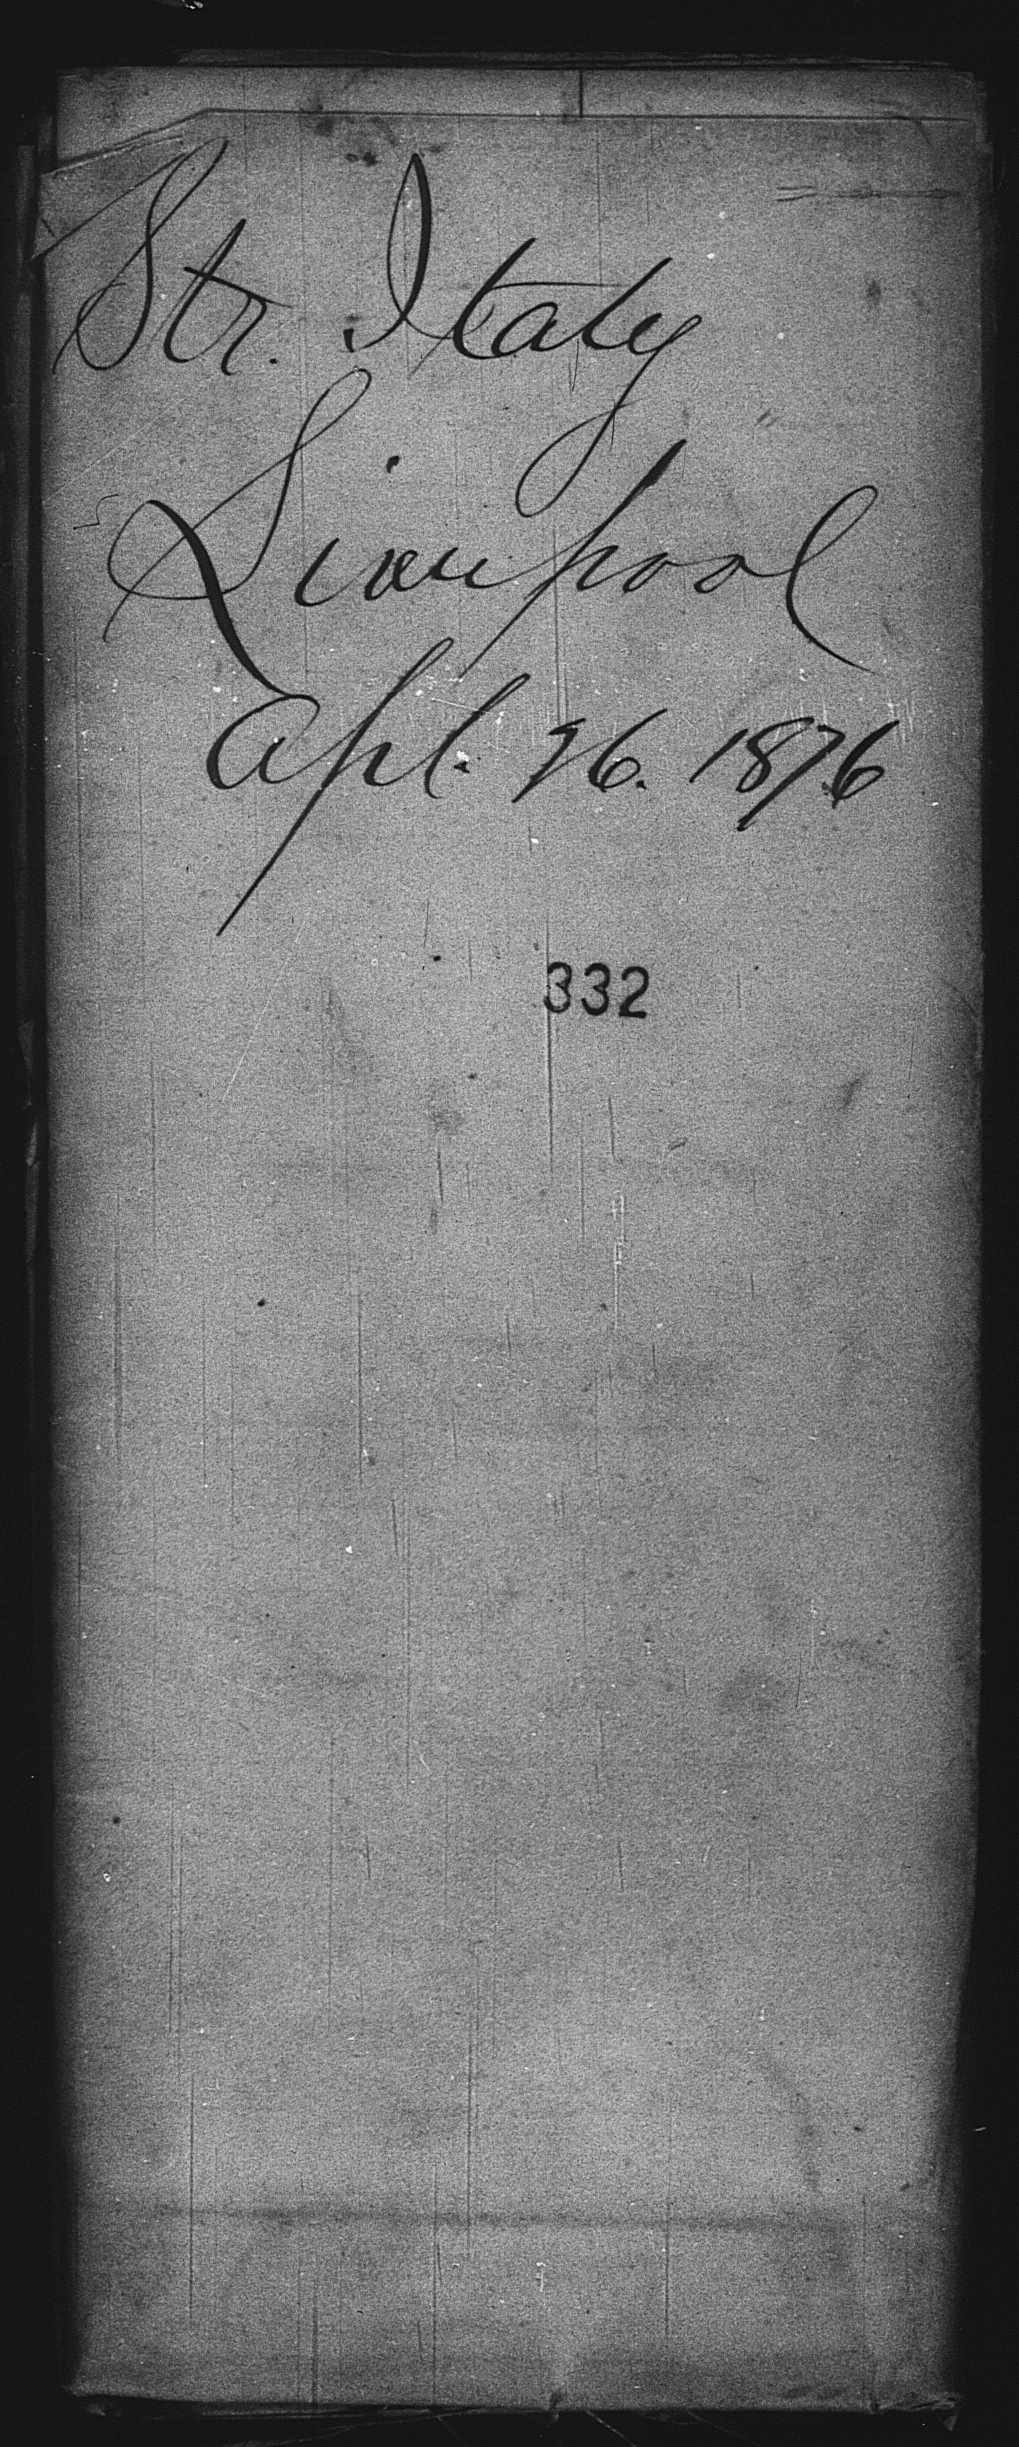 Str. Italy
Liverpool
Apl. 26. 1876
332